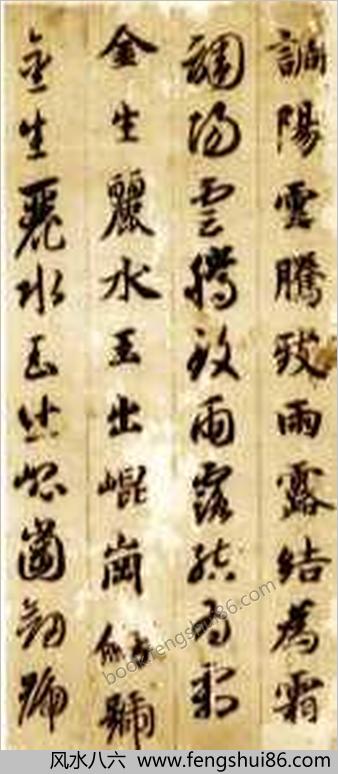 調陽雲騰致雨露結為霜
調陽雲騰致雨露結為霜
金生麗水玉出崐崗劍號
金生麗水玉出崐崗劍號
book.fengshui86.com
风水八六 www.fengshui86.com